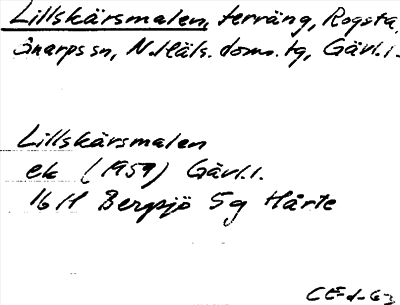 Lillskärsmalen, terräng, Rogsta,
Gnarps sn, N. Häls. doms. tg, Gävl. l.
Lillskärsmalen
ek (1959) Gävl. l.
16H Bergsjö 5g Hårte
CE-d-63